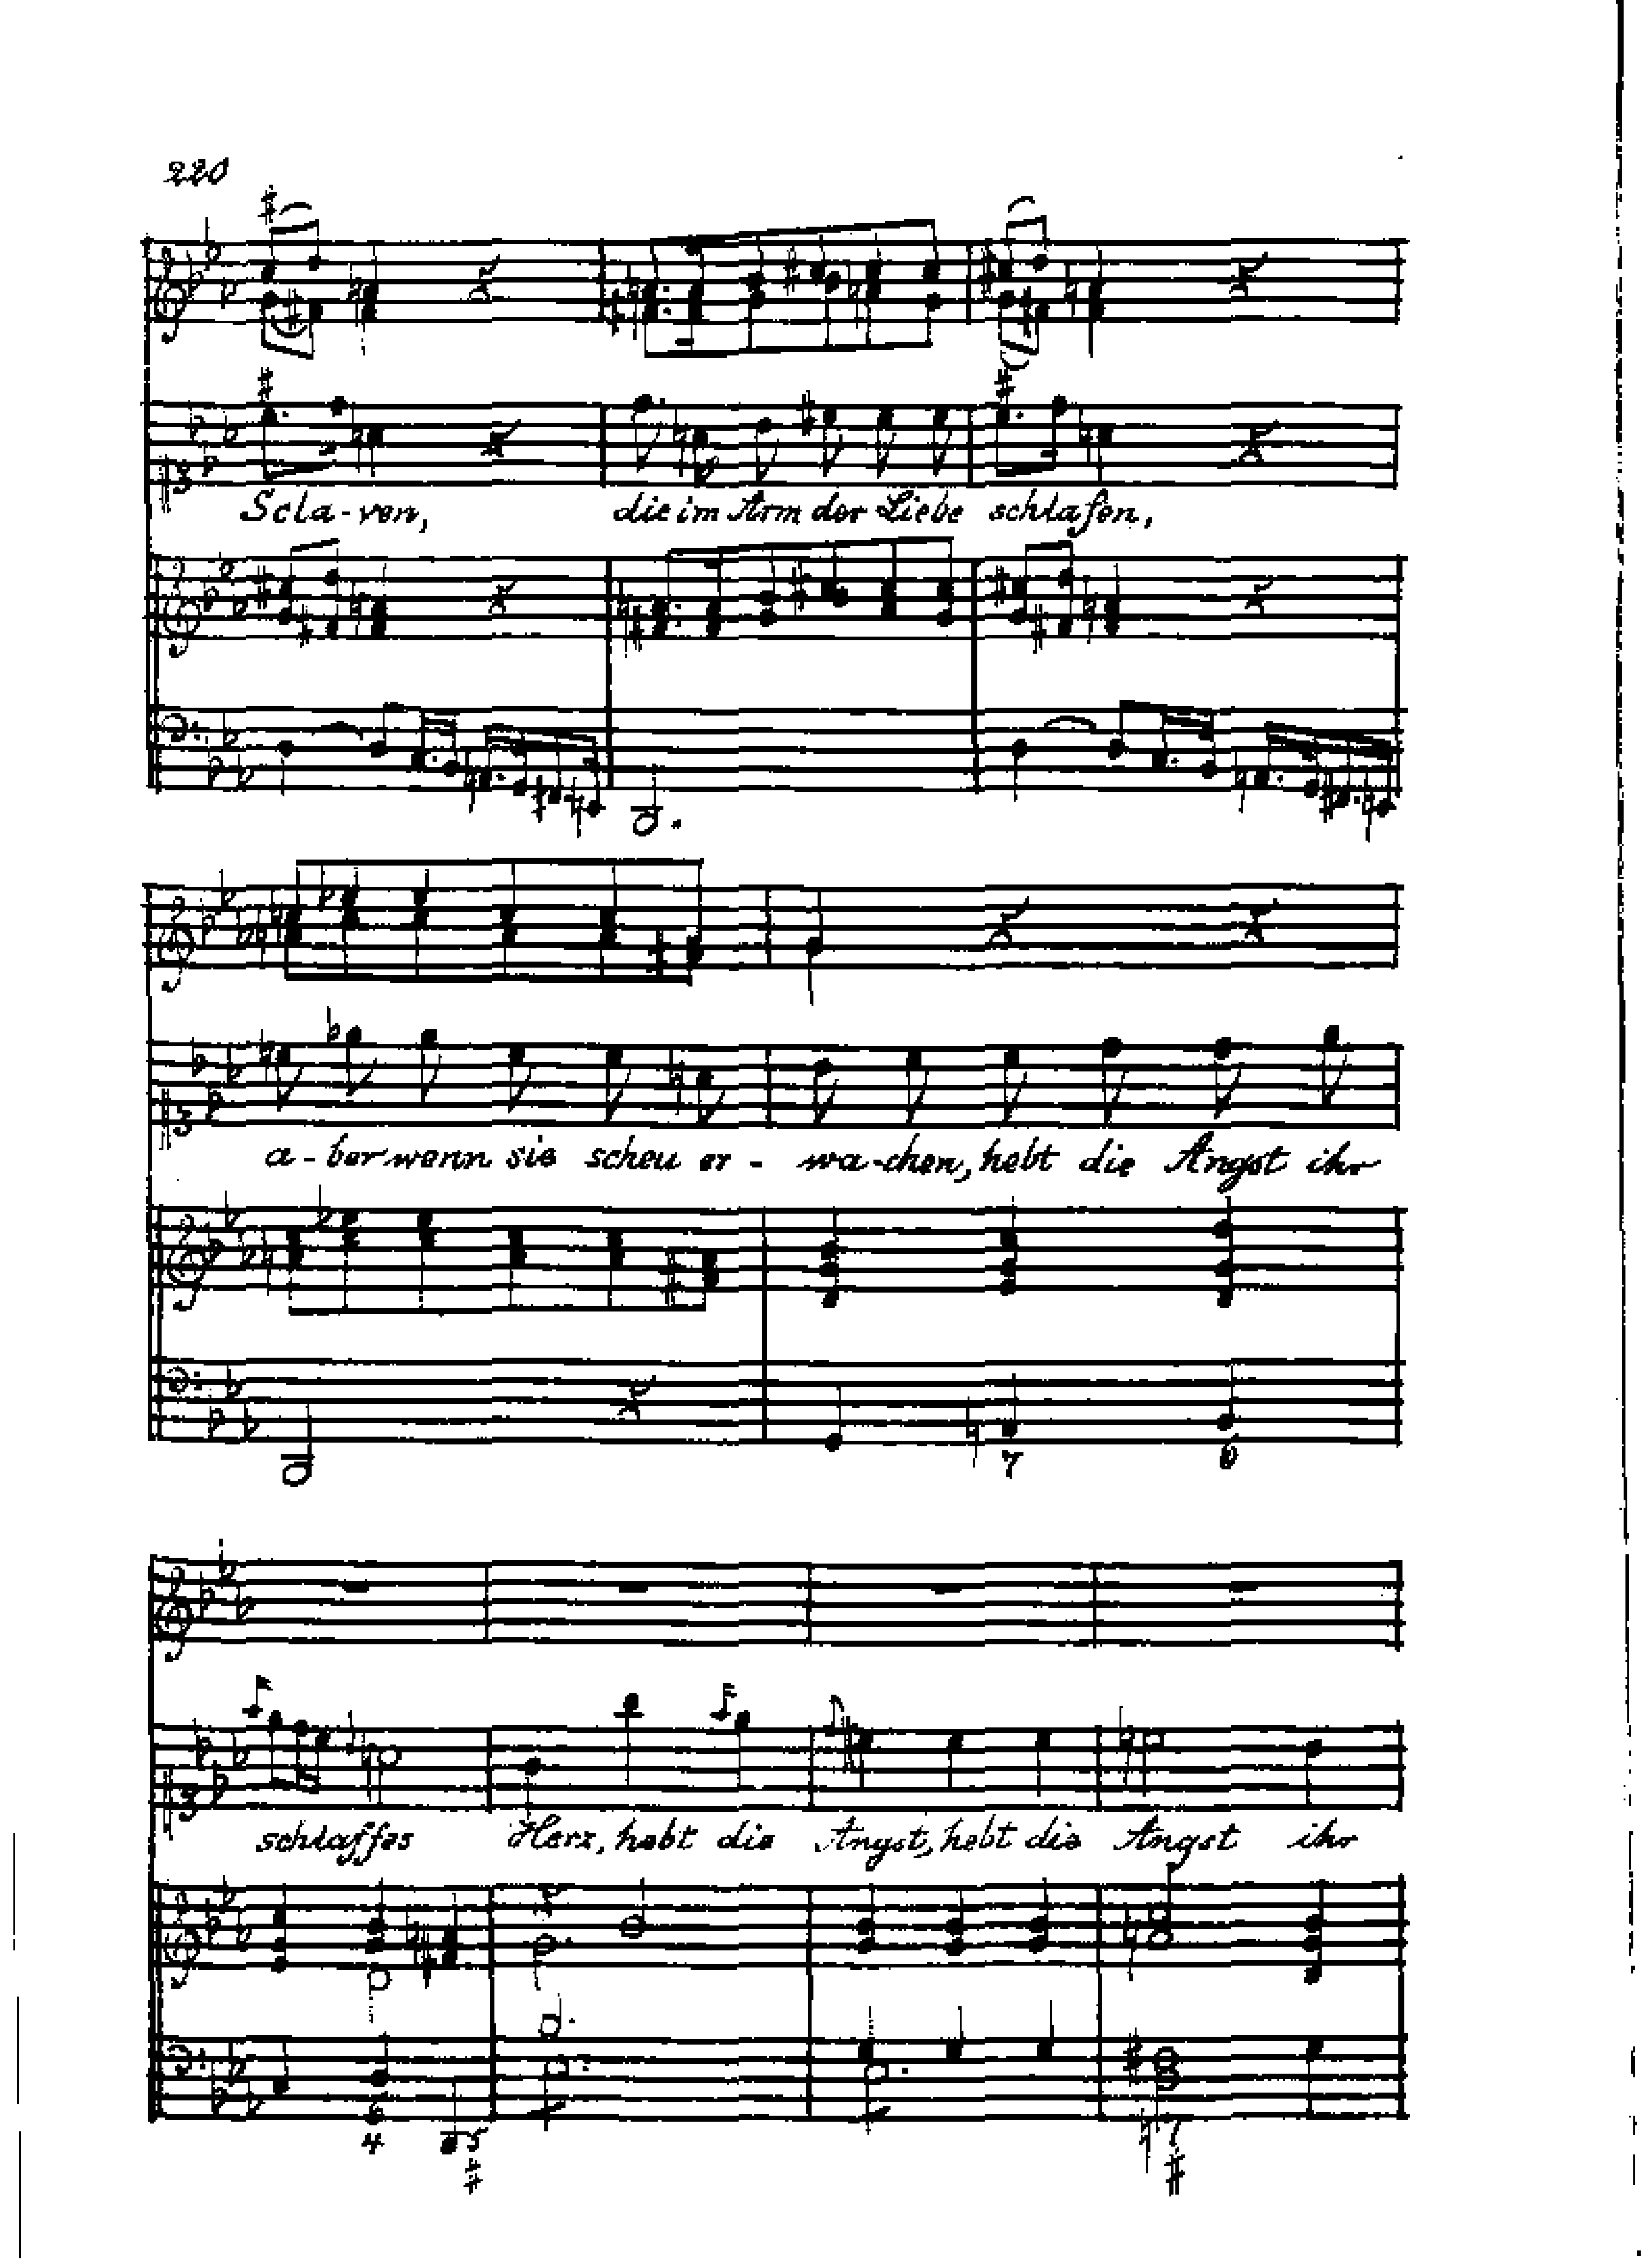 220
Scla-ven, die im Arm der Liebe schlafen,
a-ber wenn sie scheu er- wa-chen, hebt die Angst ihr
7 6
schlaffes Herz, hebt die Angst, hebt die Angst ihr
6
4 5 7